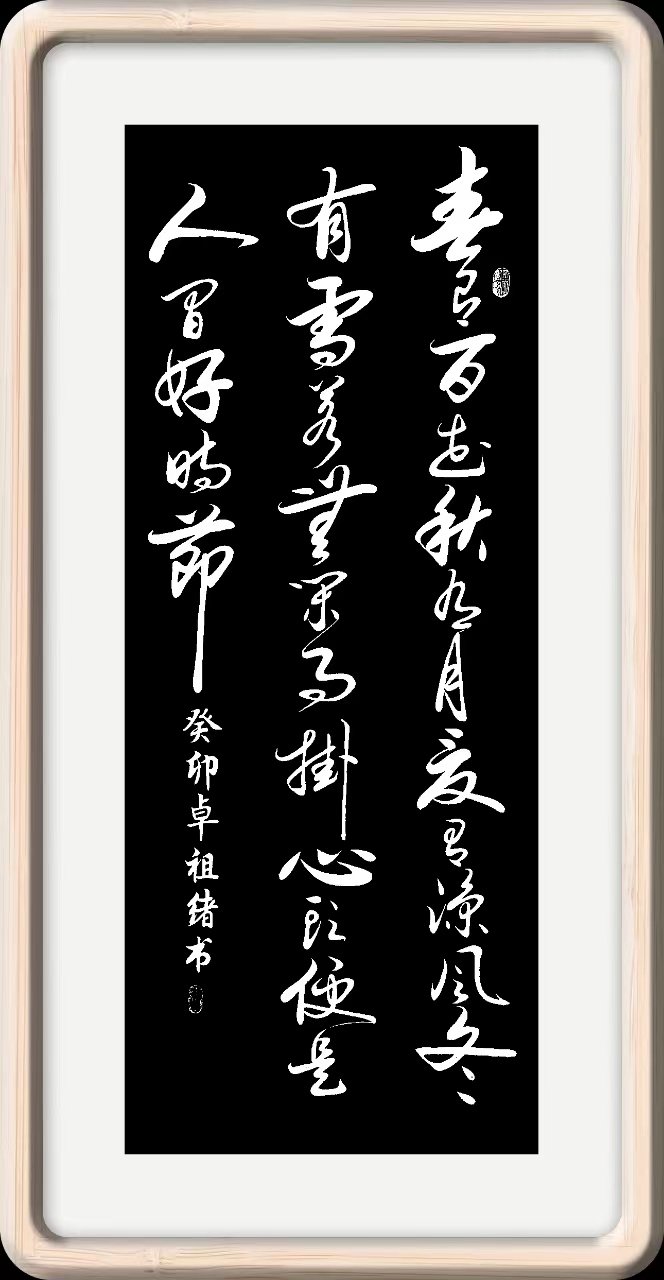 春有百花秋有月夏有涼風冬
有雪若無閑事掛心頭便是
人間好時節
癸卯卓祖緒书